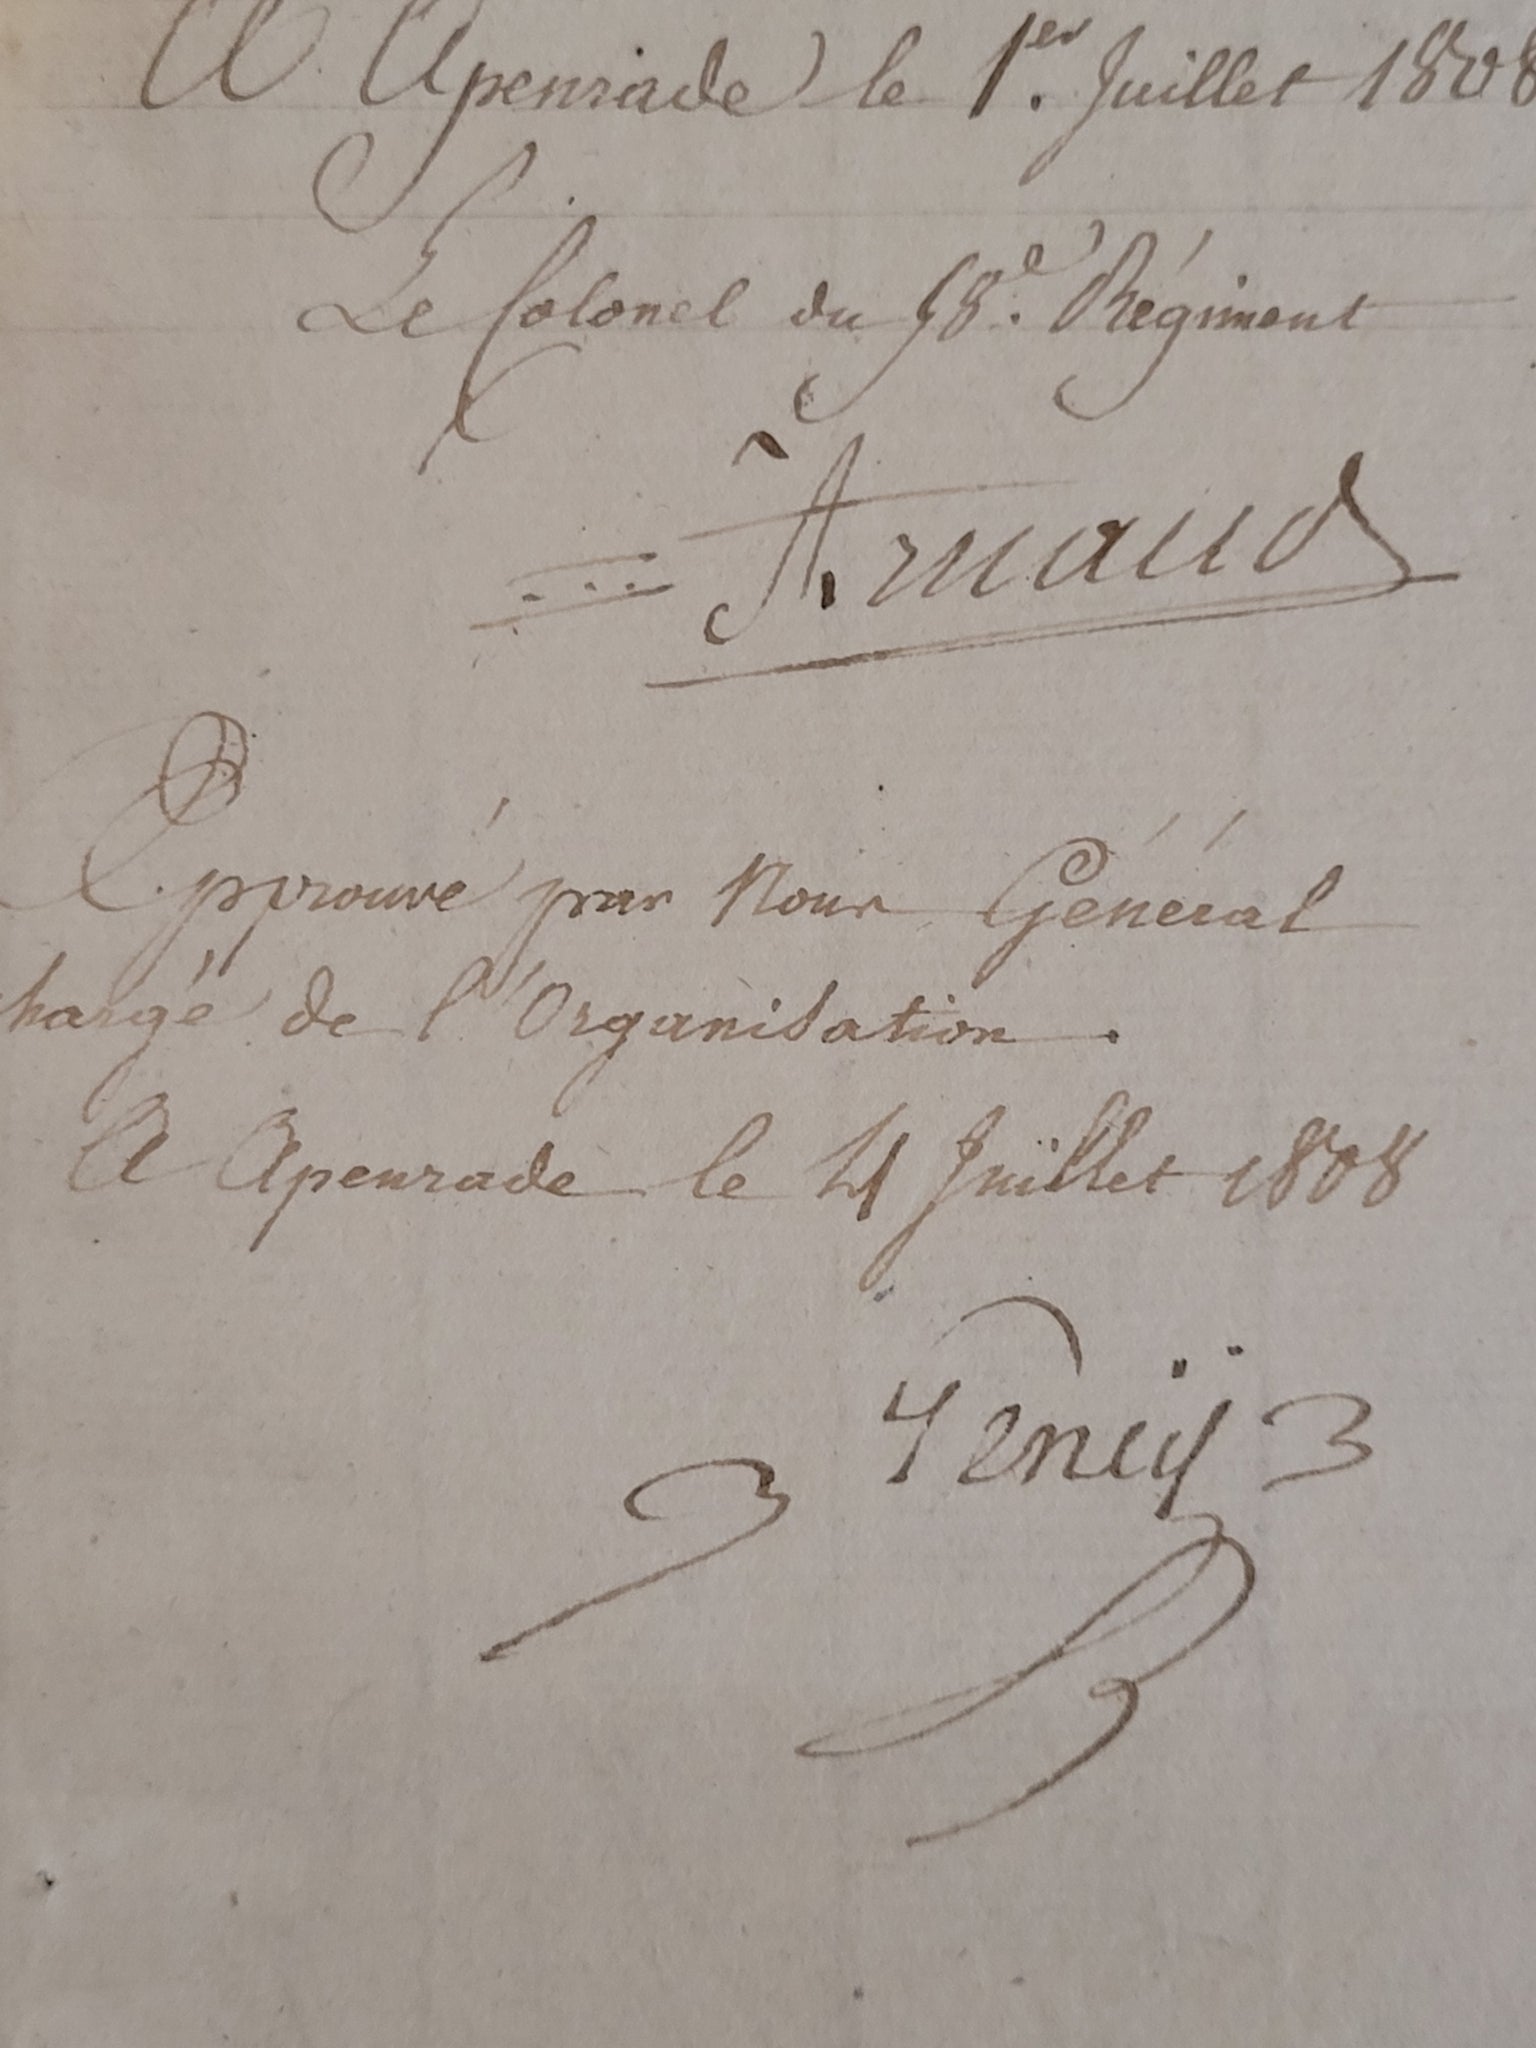 A Apenrade le 1er. Juillet 1808
Le Colonel du 58e. Régiment
Arnaud
Approuvé par Nous Général
chargé de l'Organisation.
A Apenrade le 4 Juillet 1808